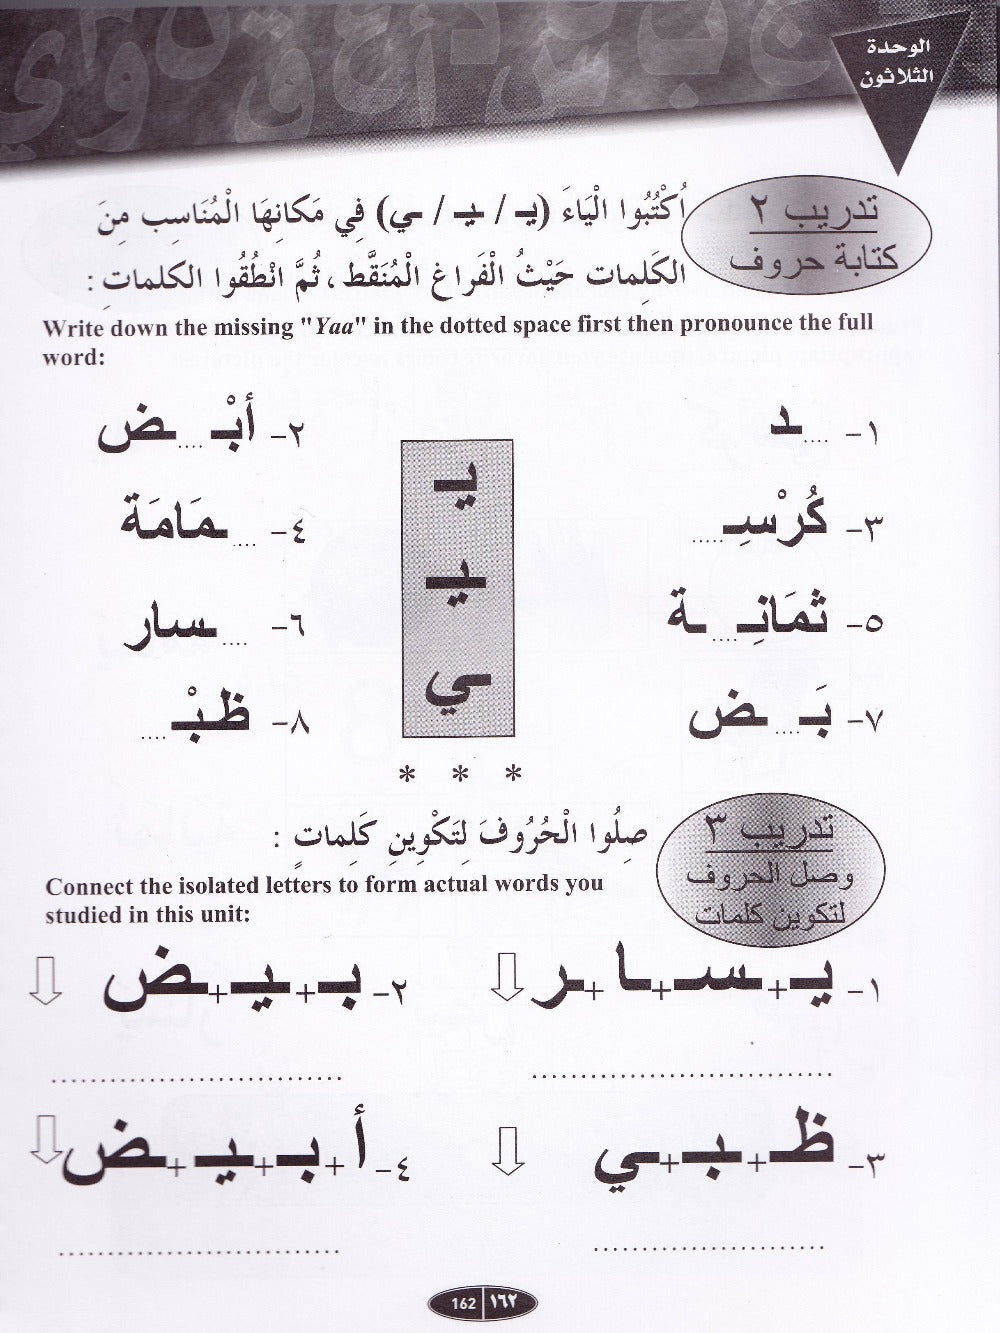 الوحدة
الثلاثون
تدريب ٢
كتابة حروف
اُكْتُبُوا الْيَاءَ (يـ / ـيـ / ـي) فِي مَكَانِهَا الْمُنَاسِبِ مِنَ
الكَلِمات حَيْثُ الْفَراغ الْمُنَقَّط، ثُمَّ انْطُقُوا الكلماتِ :
Write down the missing "Yaa" in the dotted space first then pronounce the full
word:
١- ....ـد
٢- أبْـ....ـض
٣- كُرْسِـ.....
٤- ....ـمَامَة
٥- ثمَانِـ....ـة
٦- ....ـسار
٧- بَـ....ـض
٨- ظبْـ....
يـ
ـيـ
ـي
* * *
تدريب ٣
وصل الحروف
لتكوين كلمات
صِلُوا الْحُرُوفَ لِتَكْوِينِ كَلِماتٍ :
Connect the isolated letters to form actual words you
studied in this unit:
١- يـ+ـسـ+ـا+ـر
٢- بـ+ـيـ+ـض
................................
................................
٣- ظـ+ـبـ+ـي
٤- أ+بـ+ـيـ+ـض
................................
................................
162 ١٦٢